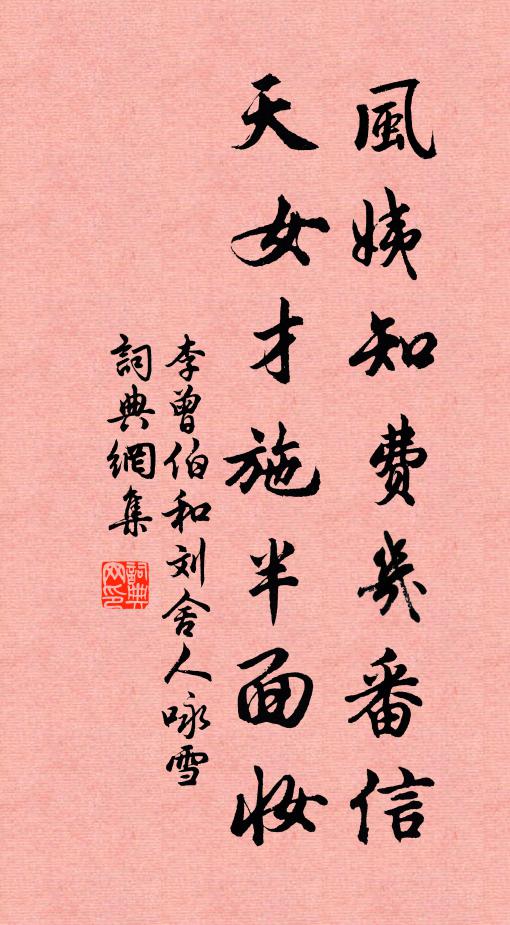 風姨知費幾番信
天女才施半面妝
李曾伯和刘舍人咏雪
詞典網集
詞典网印